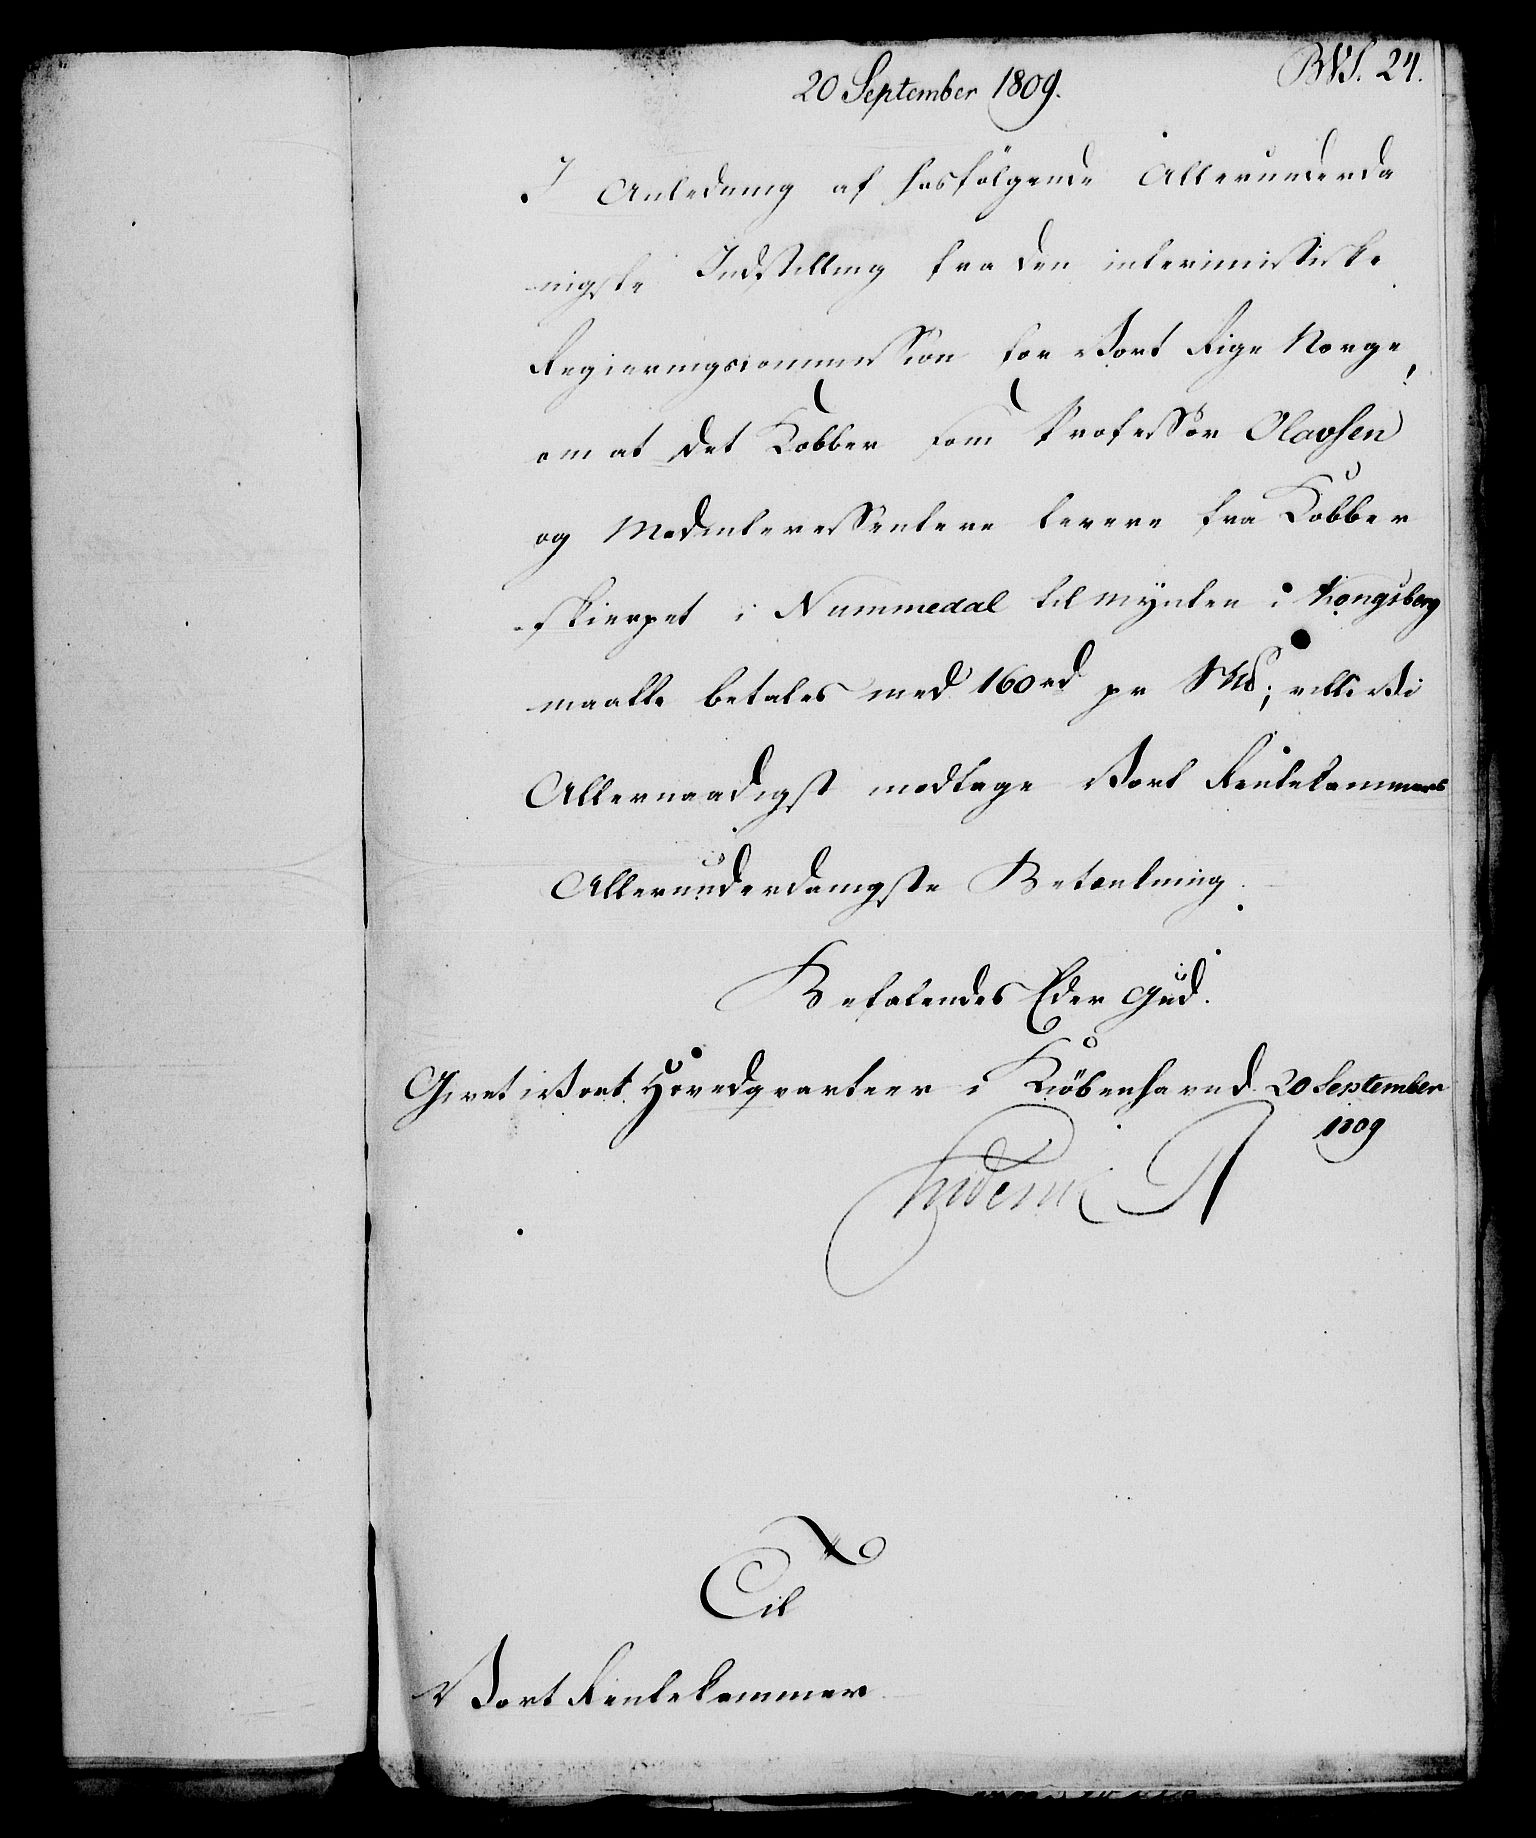 20 September 1809.
BVS. 24.
I Anledning af hosfølgende Allerunderda
nigste Indstilling fra den interimistiske
Regieringscommission for Vort Rige Norge,
om at det Kobber som Professor Olavsen
og Medinteressentere levere fra Kobber
skierpet i Nummedal til Mynten i Kongsberg
maatte betales med 160 rd pr Skd; ville Vi
Allernaadigst modtage Vort Rentekammers
Allerunderdanigste Betænkning.
Befalendes Eder Gud.
Givet i Vort Hovedqvarteer i Kiöbenhavn d. 20 September
1809
Frideric R
Til
Vort Rentekammer